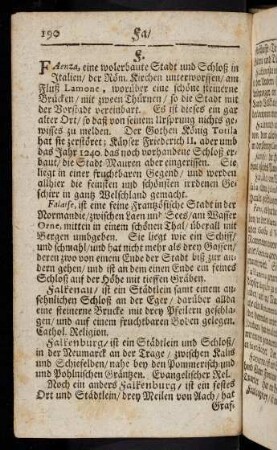 190 Fa/
F.
FAenza, eine wolerbaute Stadt und Schloß in
Italien/ der Röm. Kirchen unterworffen/ am
Fluß Lamone, worüber eine schöne steinerne
Brücken/ mit zween Thürnen/ so die Stadt mit
der Vorstadt vereinbart. Es ist dieses ein gar
alter Ort/ so daß von seinem Ursprung nichts ge-
wisses zu melden. Der Gothen König Totila
hat sie zerstöret; Käyser Friederich II. aber und
das Jahr 1240 das noch vorhandene Schloß er-
baut/ die Stadt-Mauren aber eingerissen. Sie
liegt in einer fruchtbaren Gegend/ und werden
allhier die feinsten und schönsten irrdenen Ge-
schirr in gantz Welschland gemacht.
Falaise, ist eine feine Frantzösische Stadt in der
Normandie/ zwischen Caen und Sees/ am Wasser
Orne, mitten in einem schönen Thal/ überall mit
Bergen umbgeben. Sie liegt wie ein Schiff/
und schmahl/ und hat nicht mehr als drey Gassen/
deren zwo von einem Ende der Stadt biß zur an-
dern gehen/ und ist an dem einen Ende ein feines
Schloß auf der Höhe mit tieffen Gräben.
Falkenau/ ist ein Städtlein samt einem an-
sehnlichen Schloß an der Eger/ darüber allda
eine steinerne Brucke mit drey Pfeilern geschla-
gen/ und auf einem fruchtbaren Boden gelegen.
Cathol. Religion.
Falkenburg/ ist ein Städtlein und Schloß/
in der Neumarck an der Trage/ zwischen Kains
und Schiefelden/ nahe bey den Pommerisch- und
und Pohlnischen Gräntzen. Evangelischer Rel.
Noch ein anders Falkenburg/ ist ein festes
Ort und Städtlein/ drey Meilen von Aach/ hat
Graf-